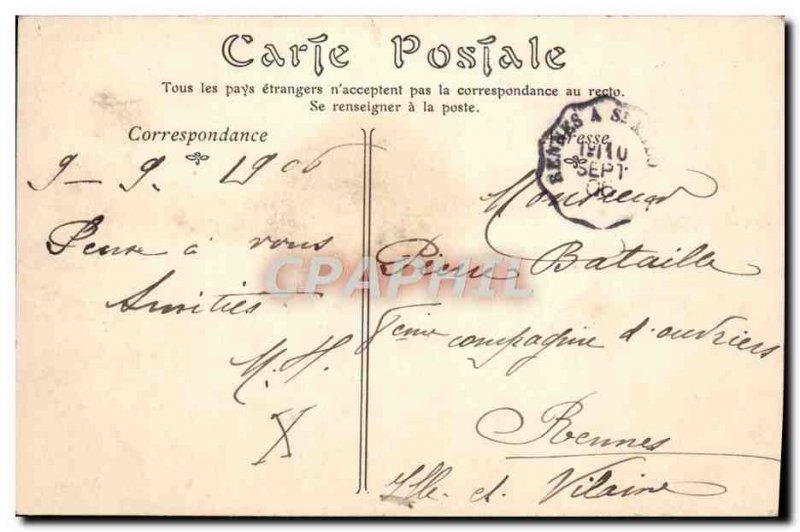 Carte Postale
Tous les pays étrangers n'acceptent pas la correspondance au recto.
Se renseigner à la poste.
Correspondance
Adresse
RENNES A ST MALO
10
SEPT
06
9 - 9. 1906
Pense à vous
Amitiés
M. H.
X
Monsieur
Pierre Bataille
8eme compagnie d'ouvriers
Rennes
Ille-et-Vilaine
CPAPHIL